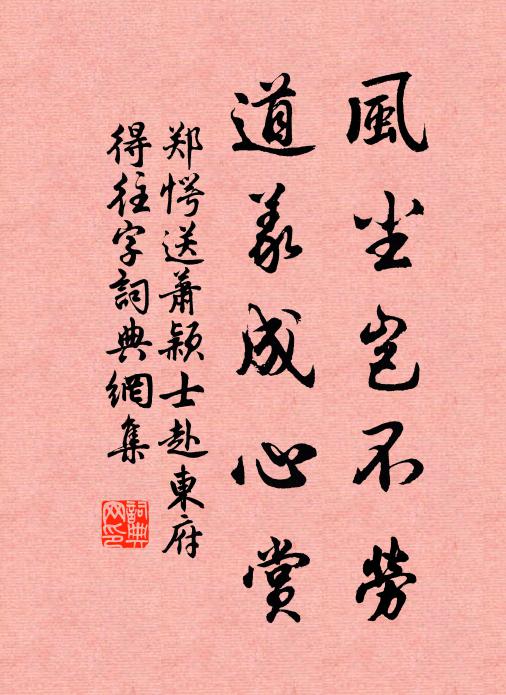 風尘岂不勞
道義成心賞
郑愕送萧颖士赴東府
得往字詞典網集
詞典网印